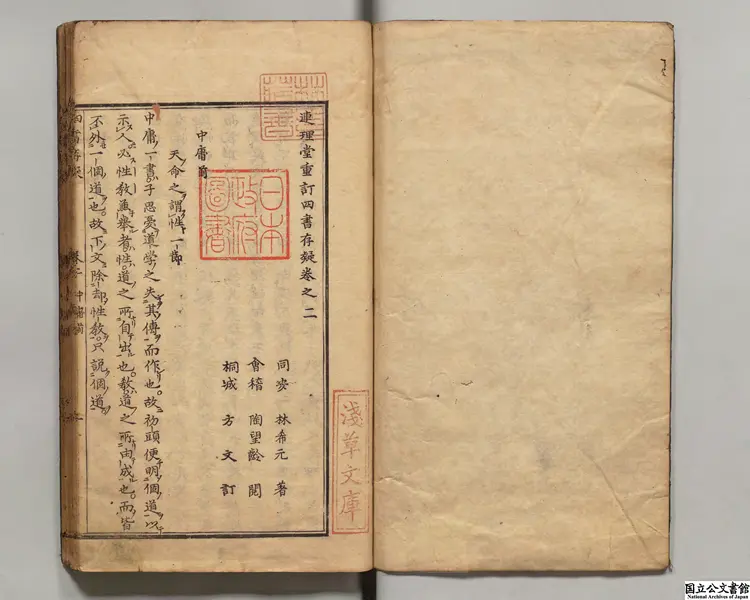 連理堂重訂四書存疑卷之二
同安 林希元 著
會稽 陶望齡 閲
桐城 方文 訂
中庸
天命之謂性一節
中庸一書子思憂道学之失其傳而作也故初頭便明個道以
示人必性教並舉者性道之所自出也教道之所由成也而皆
不外一個道也故下文除却性教只說個道
日本
政府
圖書
淺草文庫
国立公文書館
National Archives of Japan